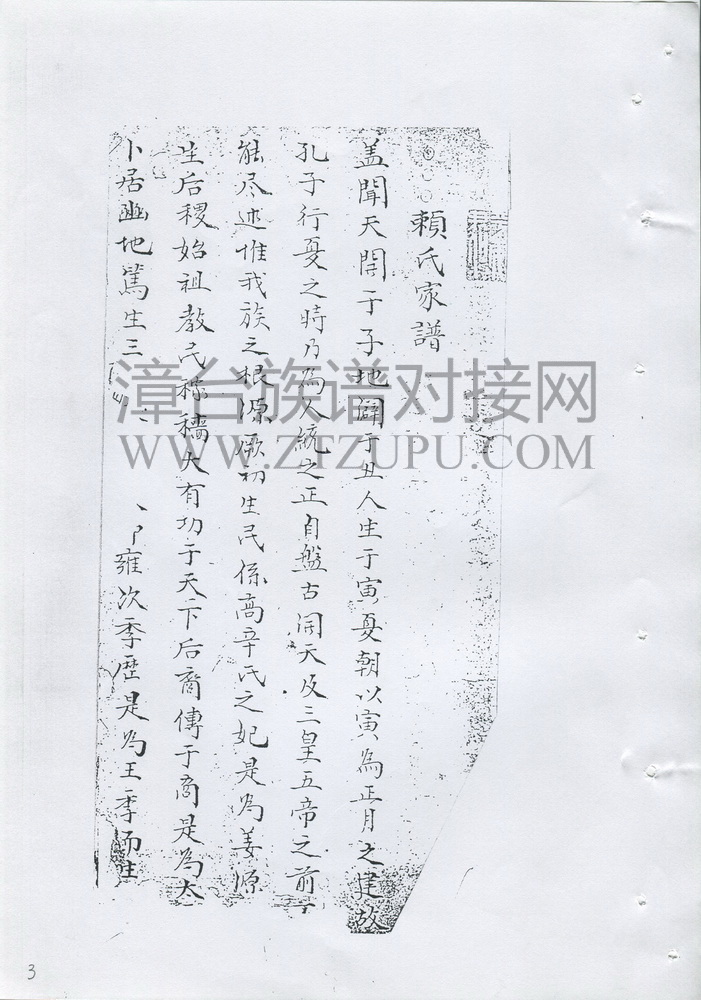 賴氏家譜
盖聞天開于子地闢于丑人生于寅夏朝以寅為正月之建故
孔子行夏之時乃為人統之正自盤古開天及三皇五帝之前
能尽述惟我族之根源厥初生民係高辛氏之妃是為姜源
生后稷始祖教民稼穡大有功于天下后裔傳于商是為太
卜居豳地篤生三
雍次季歴是為王季而生
漳台族谱对接网
WWW.ZTZUPU.COM
3